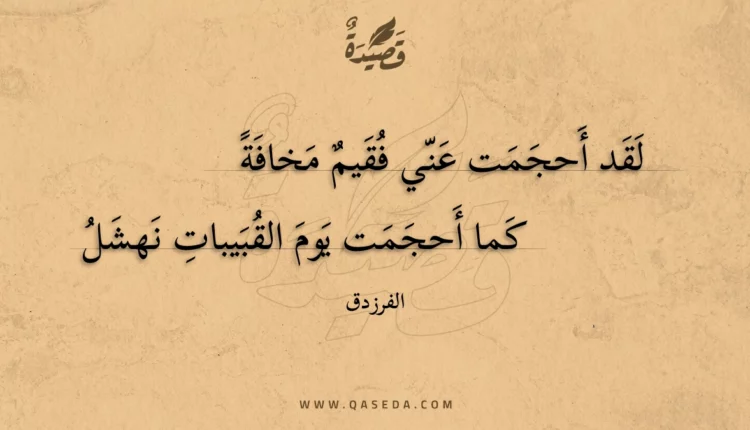 قَصِيْدَةٌ
لَقَد أَحجَمَت عَنّي فُقَيمٌ مَخافَةً
كَما أَحجَمَت يَومَ القُبَيباتِ نَهشَلُ
الفرزدق
WWW.QASEDA.COM